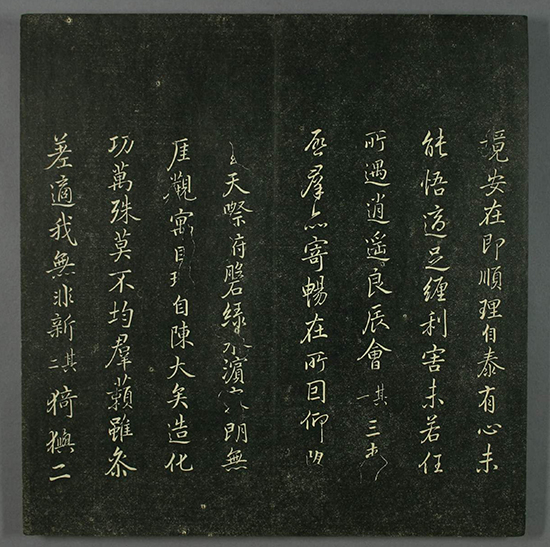 境安在即順理自泰有心未
能悟適足纏利害未若任
所遇逍遙良辰會其一三春
啓羣品寄暢在所因仰
天際府磐綠水濱寥朗無
厓觀寓目理自陳大矣造化
功萬殊莫不均羣籟雖叅
差適我無非新其二猗歟二